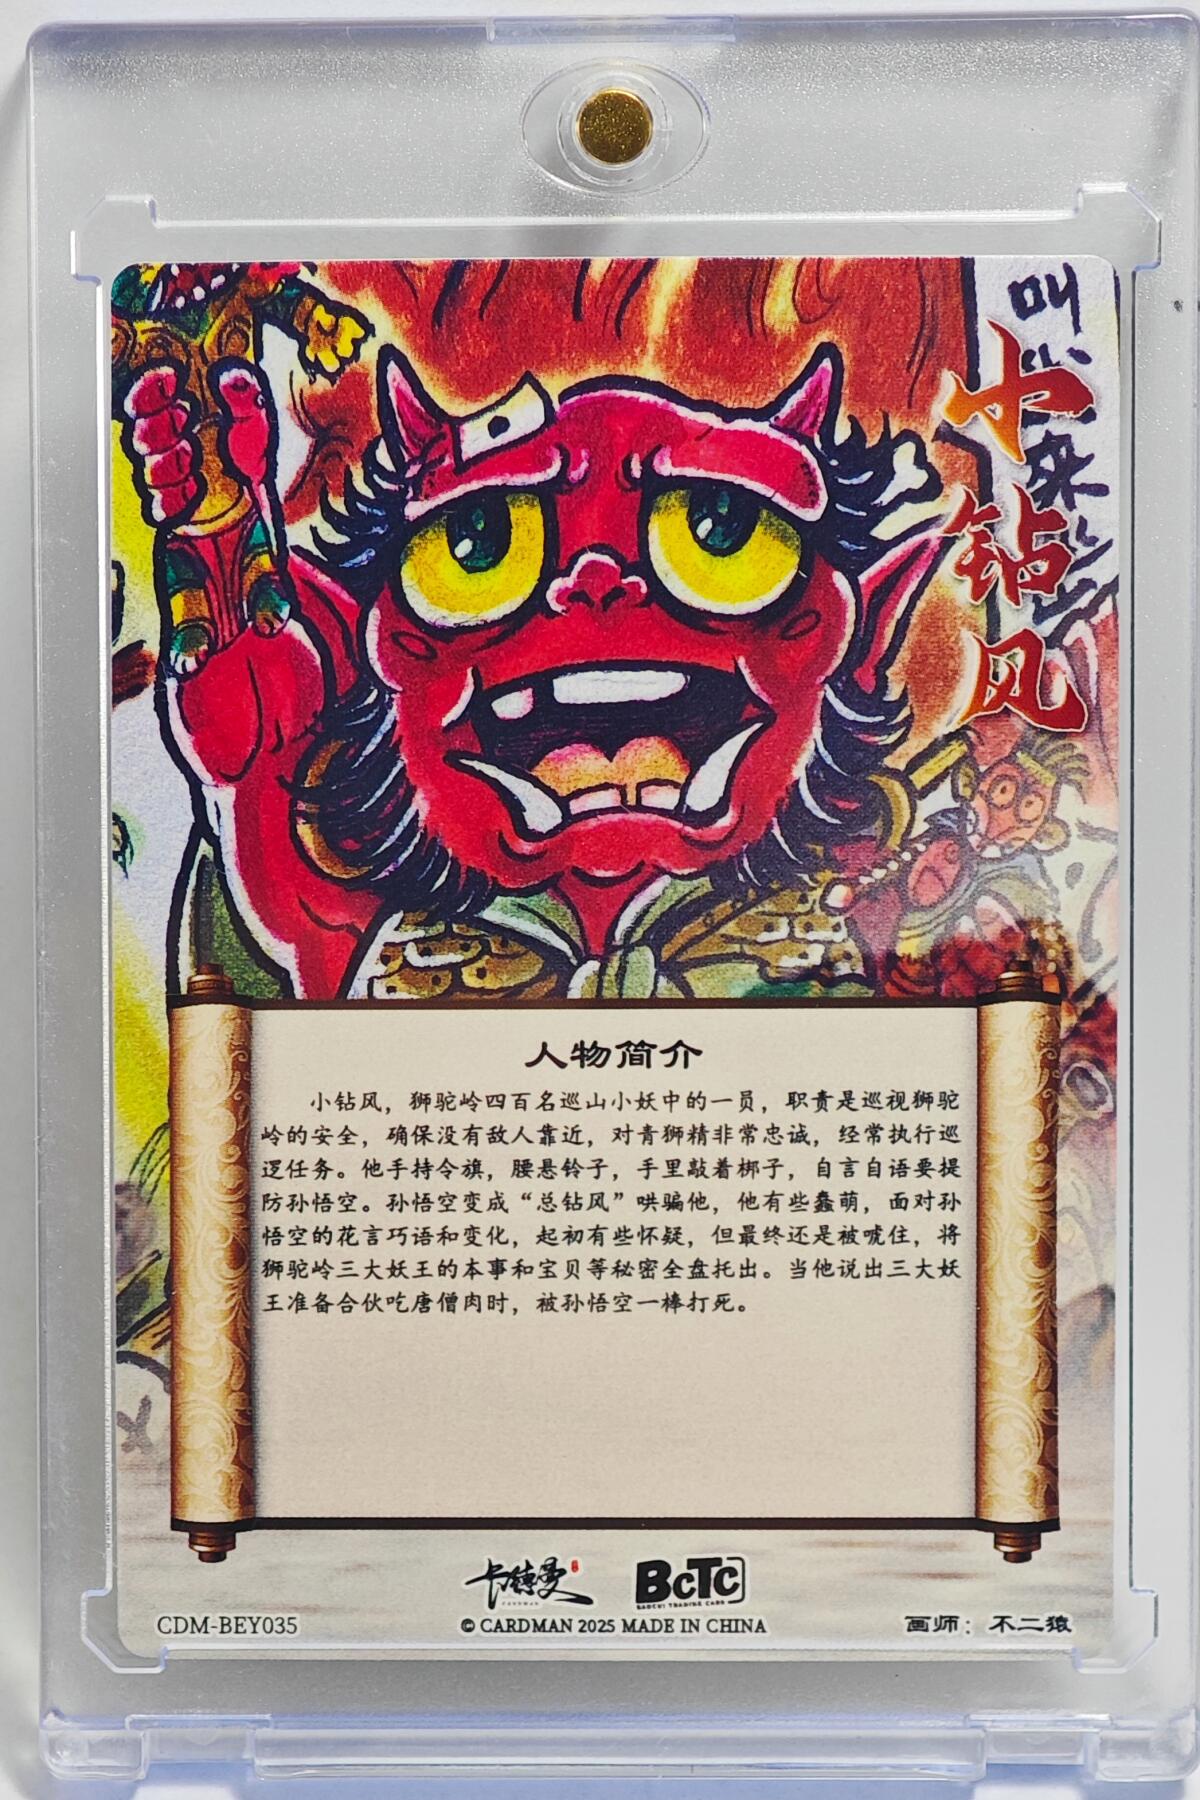 叫
小
来
小钻风
人物简介
小钻风，狮驼岭四百名巡山小妖中的一员，职责是巡视狮驼
岭的安全，确保没有敌人靠近，对青狮精非常忠诚，经常执行巡
逻任务。他手持令旗，腰悬铃子，手里敲着梆子，自言自语要提
防孙悟空。孙悟空变成“总钻风”哄骗他，他有些蠢萌，面对孙
悟空的花言巧语和变化，起初有些怀疑，但最终还是被唬住，将
狮驼岭三大妖王的本事和宝贝等秘密全盘托出。当他说出三大妖
王准备合伙吃唐僧肉时，被孙悟空一棒打死。
卡德曼
CARDMAN
BCTC
BAOCUI TRADING CARD
CDM-BEY035
© CARDMAN 2025 MADE IN CHINA
画师：不二猿